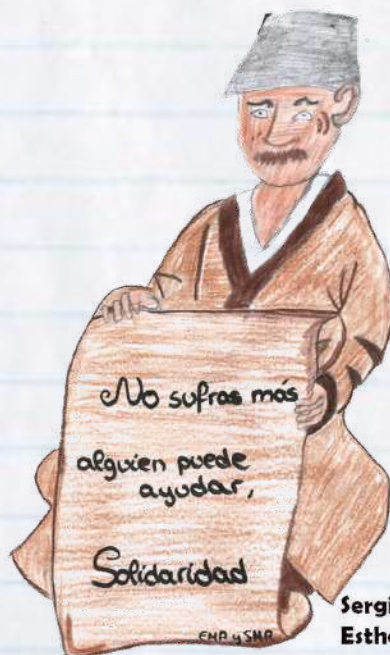 No sufras más
alguien puede
ayudar,
Solidaridad
EMA y SMA
Sergi
Esthe